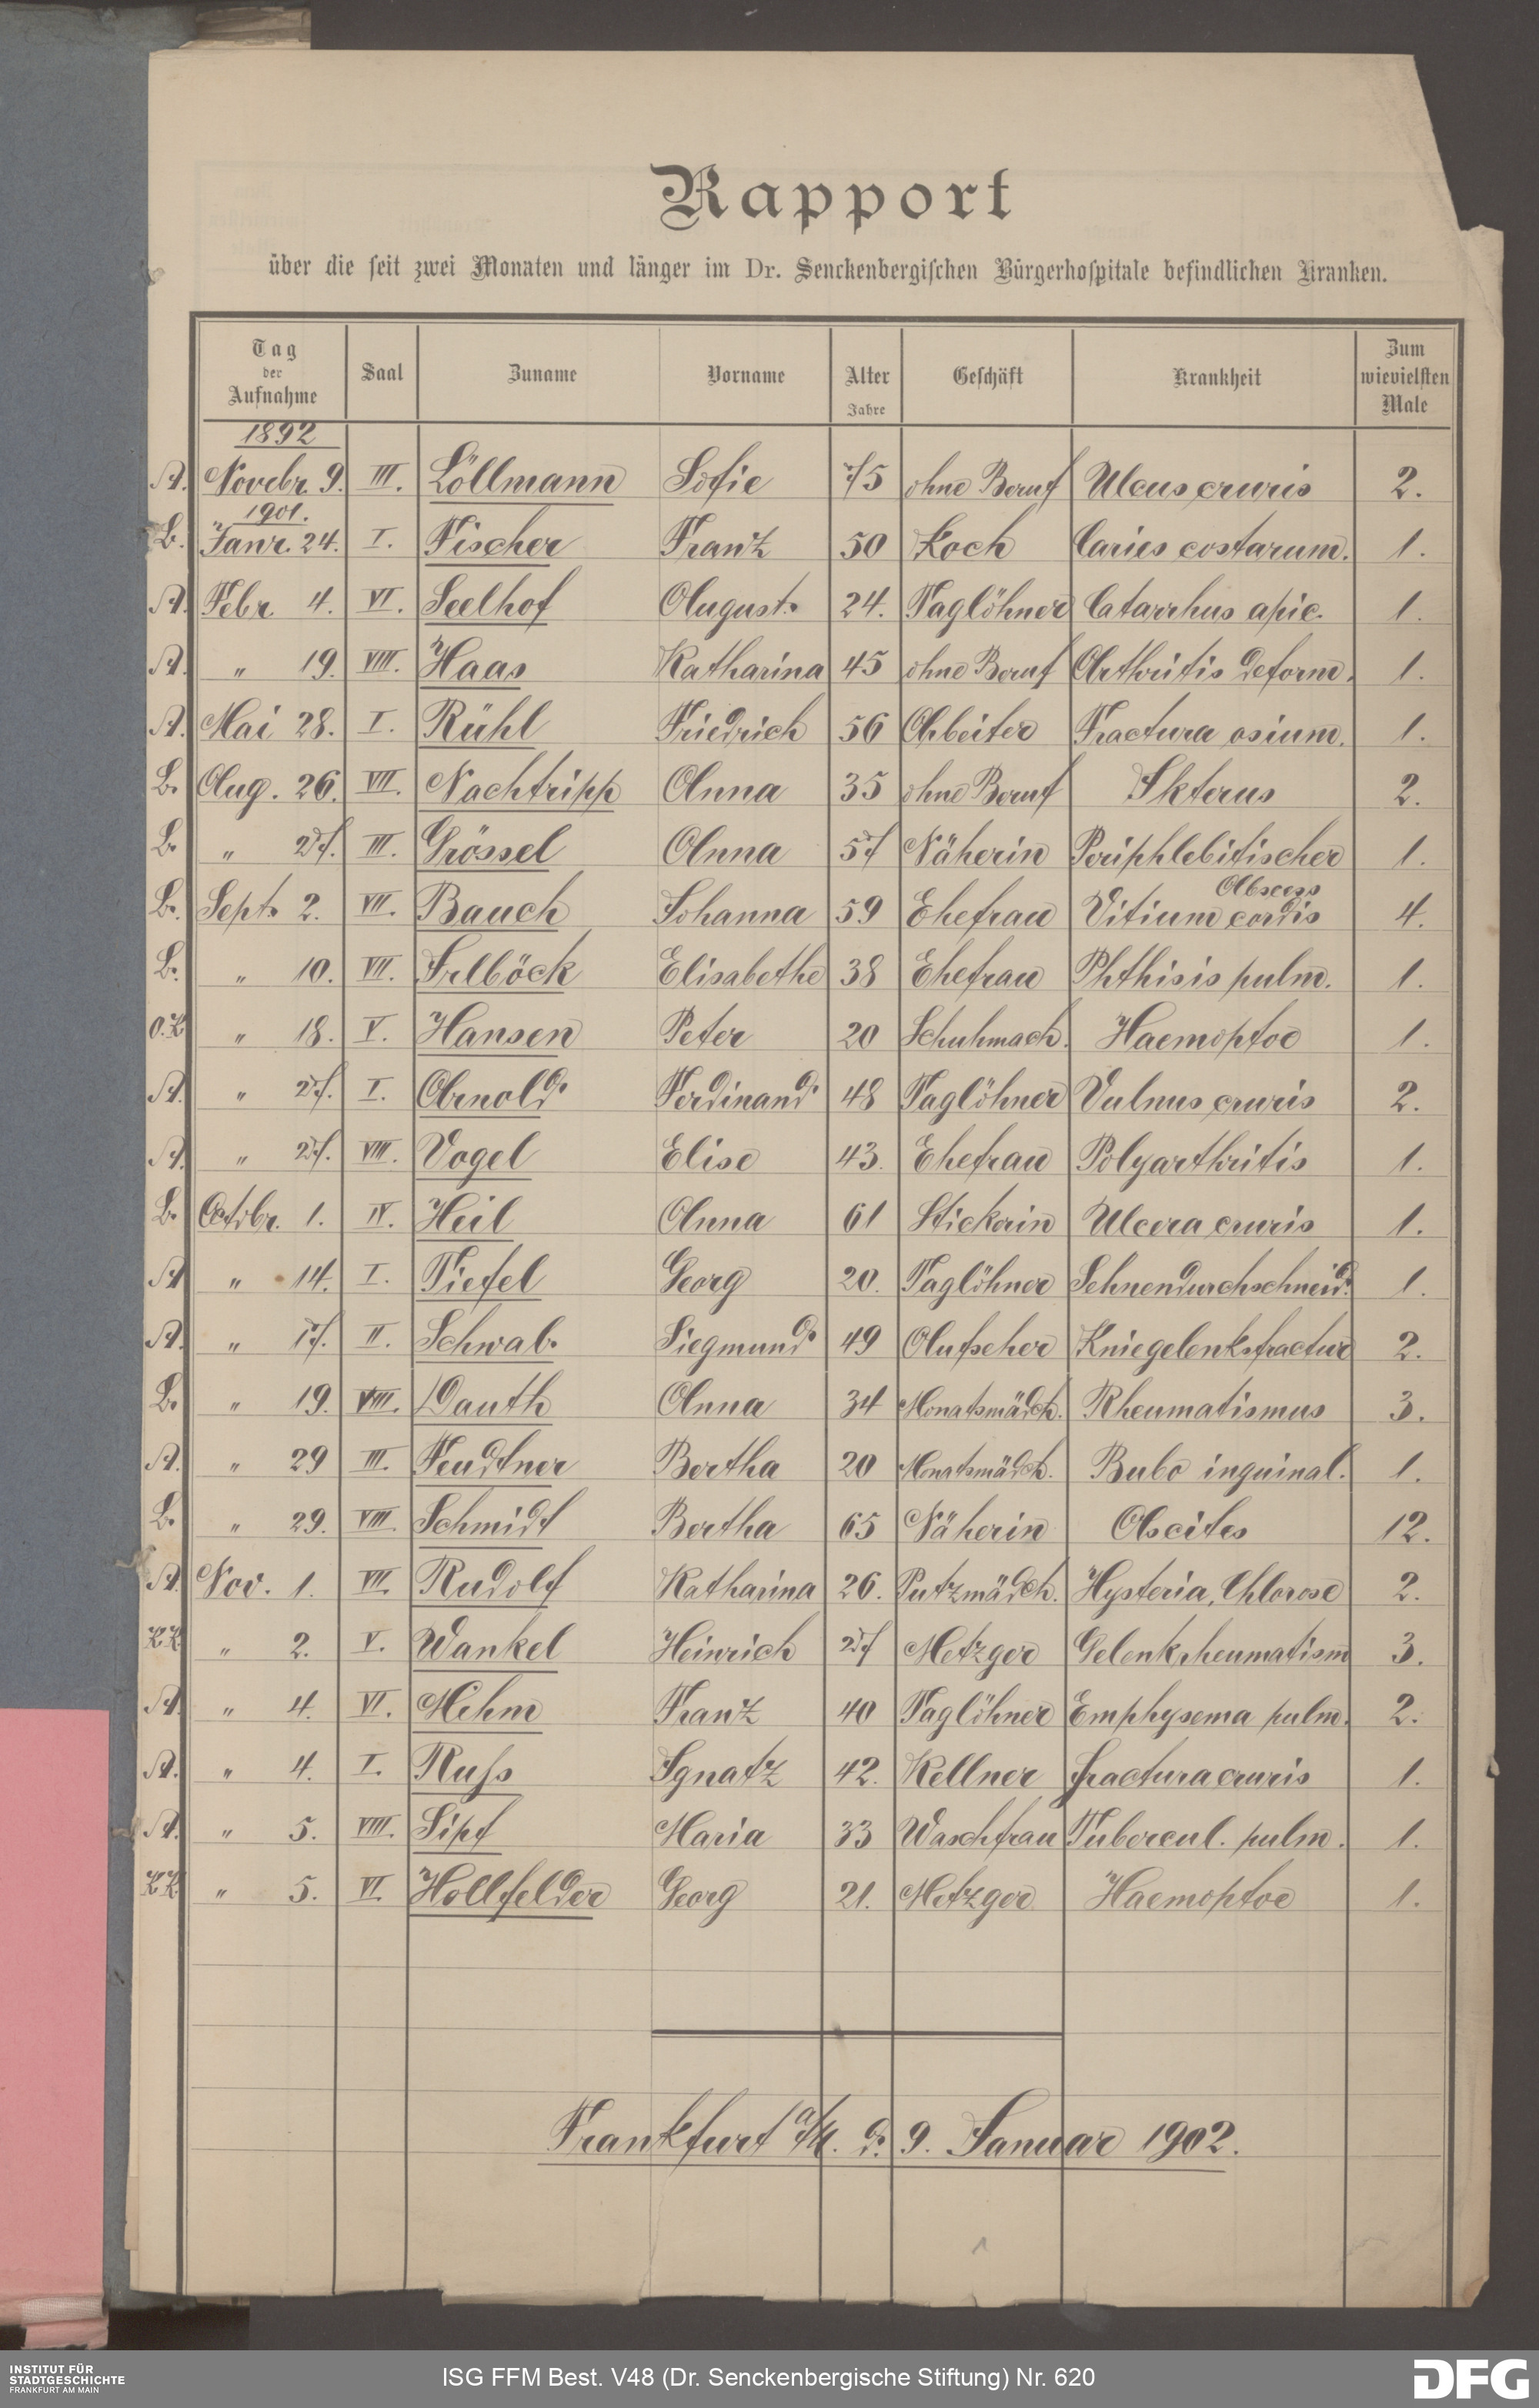 Rapport
über die seit zwei Monaten und länger im Dr. Senckenbergischen Bürgerhospitale befindlichen Kranken.
Tag der Aufnahme Saal Zuname Vorname Alter Jahre Geschäft Krankheit Zum wievielsten Male
1892
A. Novebr. 9. III. Löllmann Sofie 75 ohne Beruf Ulcus cruris 2.
1901.
B. Janr. 24. I. Fischer Franz 50 Koch Caries costarum. 1.
A. Febr. 4. VI. Seelhof August. 24. Taglöhner Catarrhus apic. 1.
A. " 19. VIII. Haas Katharina 45 ohne Beruf Arthritis deform. 1.
A. Mai 28. I. Rühl Friedrich 56 Arbeiter Fractura osium. 1.
B. Aug. 26. VII. Nachtripp Anna 35 ohne Beruf Ikterus 2.
B. " 27. III. Grössel Anna 57 Näherin Periphlebitischer 1.
Abscess
B. Sept. 2. VII. Bauch Johanna 59 Ehefrau Vitium cordis 4.
B. " 10. VII. Irlböck Elisabethe 38 Ehefrau Phthisis pulm. 1.
O.K " 18. V. Hansen Peter 20 Schuhmach. Haemoptoe 1.
A. " 27. I. Arnold. Ferdinand. 48 Taglöhner Vulnus cruris 2.
A. " 27. VIII. Vogel Elise 43. Ehefrau Polyarthritis 1.
B. Octobr. 1. IV. Heil Anna 61 Stickerin Ulcera cruris 1.
A " 14. I. Tiefel Georg 20. Taglöhner Sehnendurchschneid. 1.
A. " 17. II. Schwab. Siegmund. 49 Aufseher Kniegelenksfractur 2.
B. " 19. VIII. Dauth Anna 34 Monatsmädch. Rheumatismus 3.
A. " 29 III. Feudtner Bertha 20 Monatsmädch. Bubo inguinal. 1.
B. " 29. VIII. Schmidt Bertha 65 Näherin Ascites 12.
A. Nov. 1. VII. Rudolf Katharina 26. Putzmädch. Hysteria, Chlorose 2.
K.K. " 2. V. Wankel Heinrich 27 Metzger Gelenkrheumatism 3.
A. " 4. VI. Mehm Franz 40 Taglöhner Emphysema pulm. 2.
A. " 4. I. Ruß Ignatz 42. Kellner fractura cruris 1.
A. " 5. VIII. Sipf Maria 33 Waschfrau Tubercul. pulm. 1.
K.K. " 5. VI. Hollfelder Georg 21. Metzger Haemoptoe 1.
Frankfurt a/M. d. 9. Januar 1902.
INSTITUT FÜR
STADTGESCHICHTE
FRANKFURT AM MAIN
ISG FFM Best. V48 (Dr. Senckenbergische Stiftung) Nr. 620
DFG